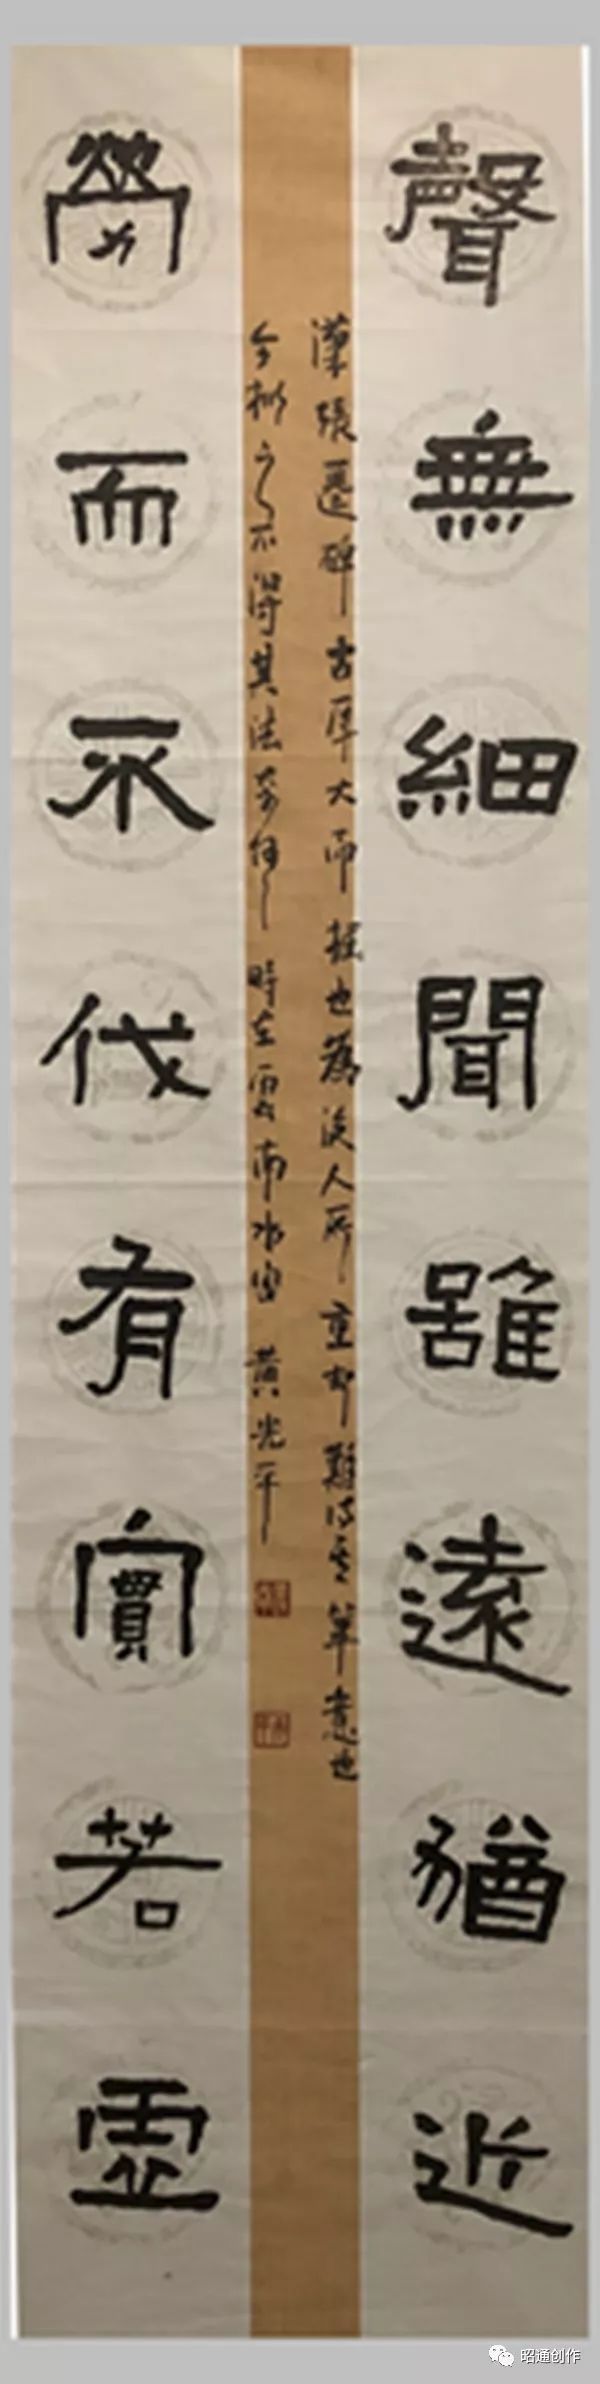 聲無細聞雖遠猶近
勞而不伐有實若虛
漢張遷碑古厚大而拙也為後人所重却難得其筆意也
今擬之不得其法奈何時在雲南水富黄光平
昭通创作